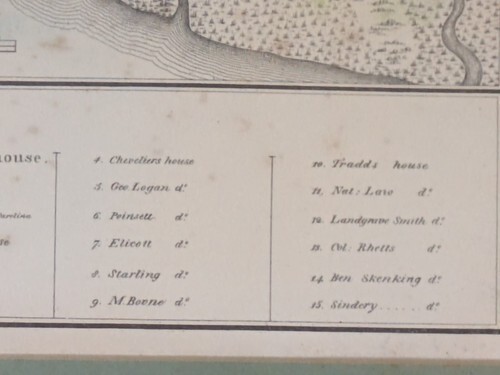 ouse.
4. Cheveliers house
5. Geo Logan dº
6. Poinsett dº
7. Elicott dº
8. Starling dº
9. M. Boone dº
10. Tradds house
11. Nat: Law dº
12. Landgrave Smith dº
13. Col: Rhetts dº
14. Ben Skenking dº
15. Sindery...... dº